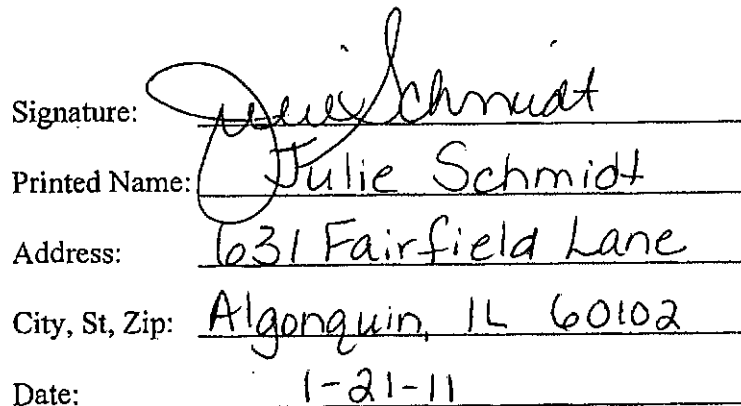 Signature: Julie Schmidt
Printed Name: Julie Schmidt
Address: 631 Fairfield Lane
City, St, Zip: Algonquin, IL 60102
Date: 1-21-11